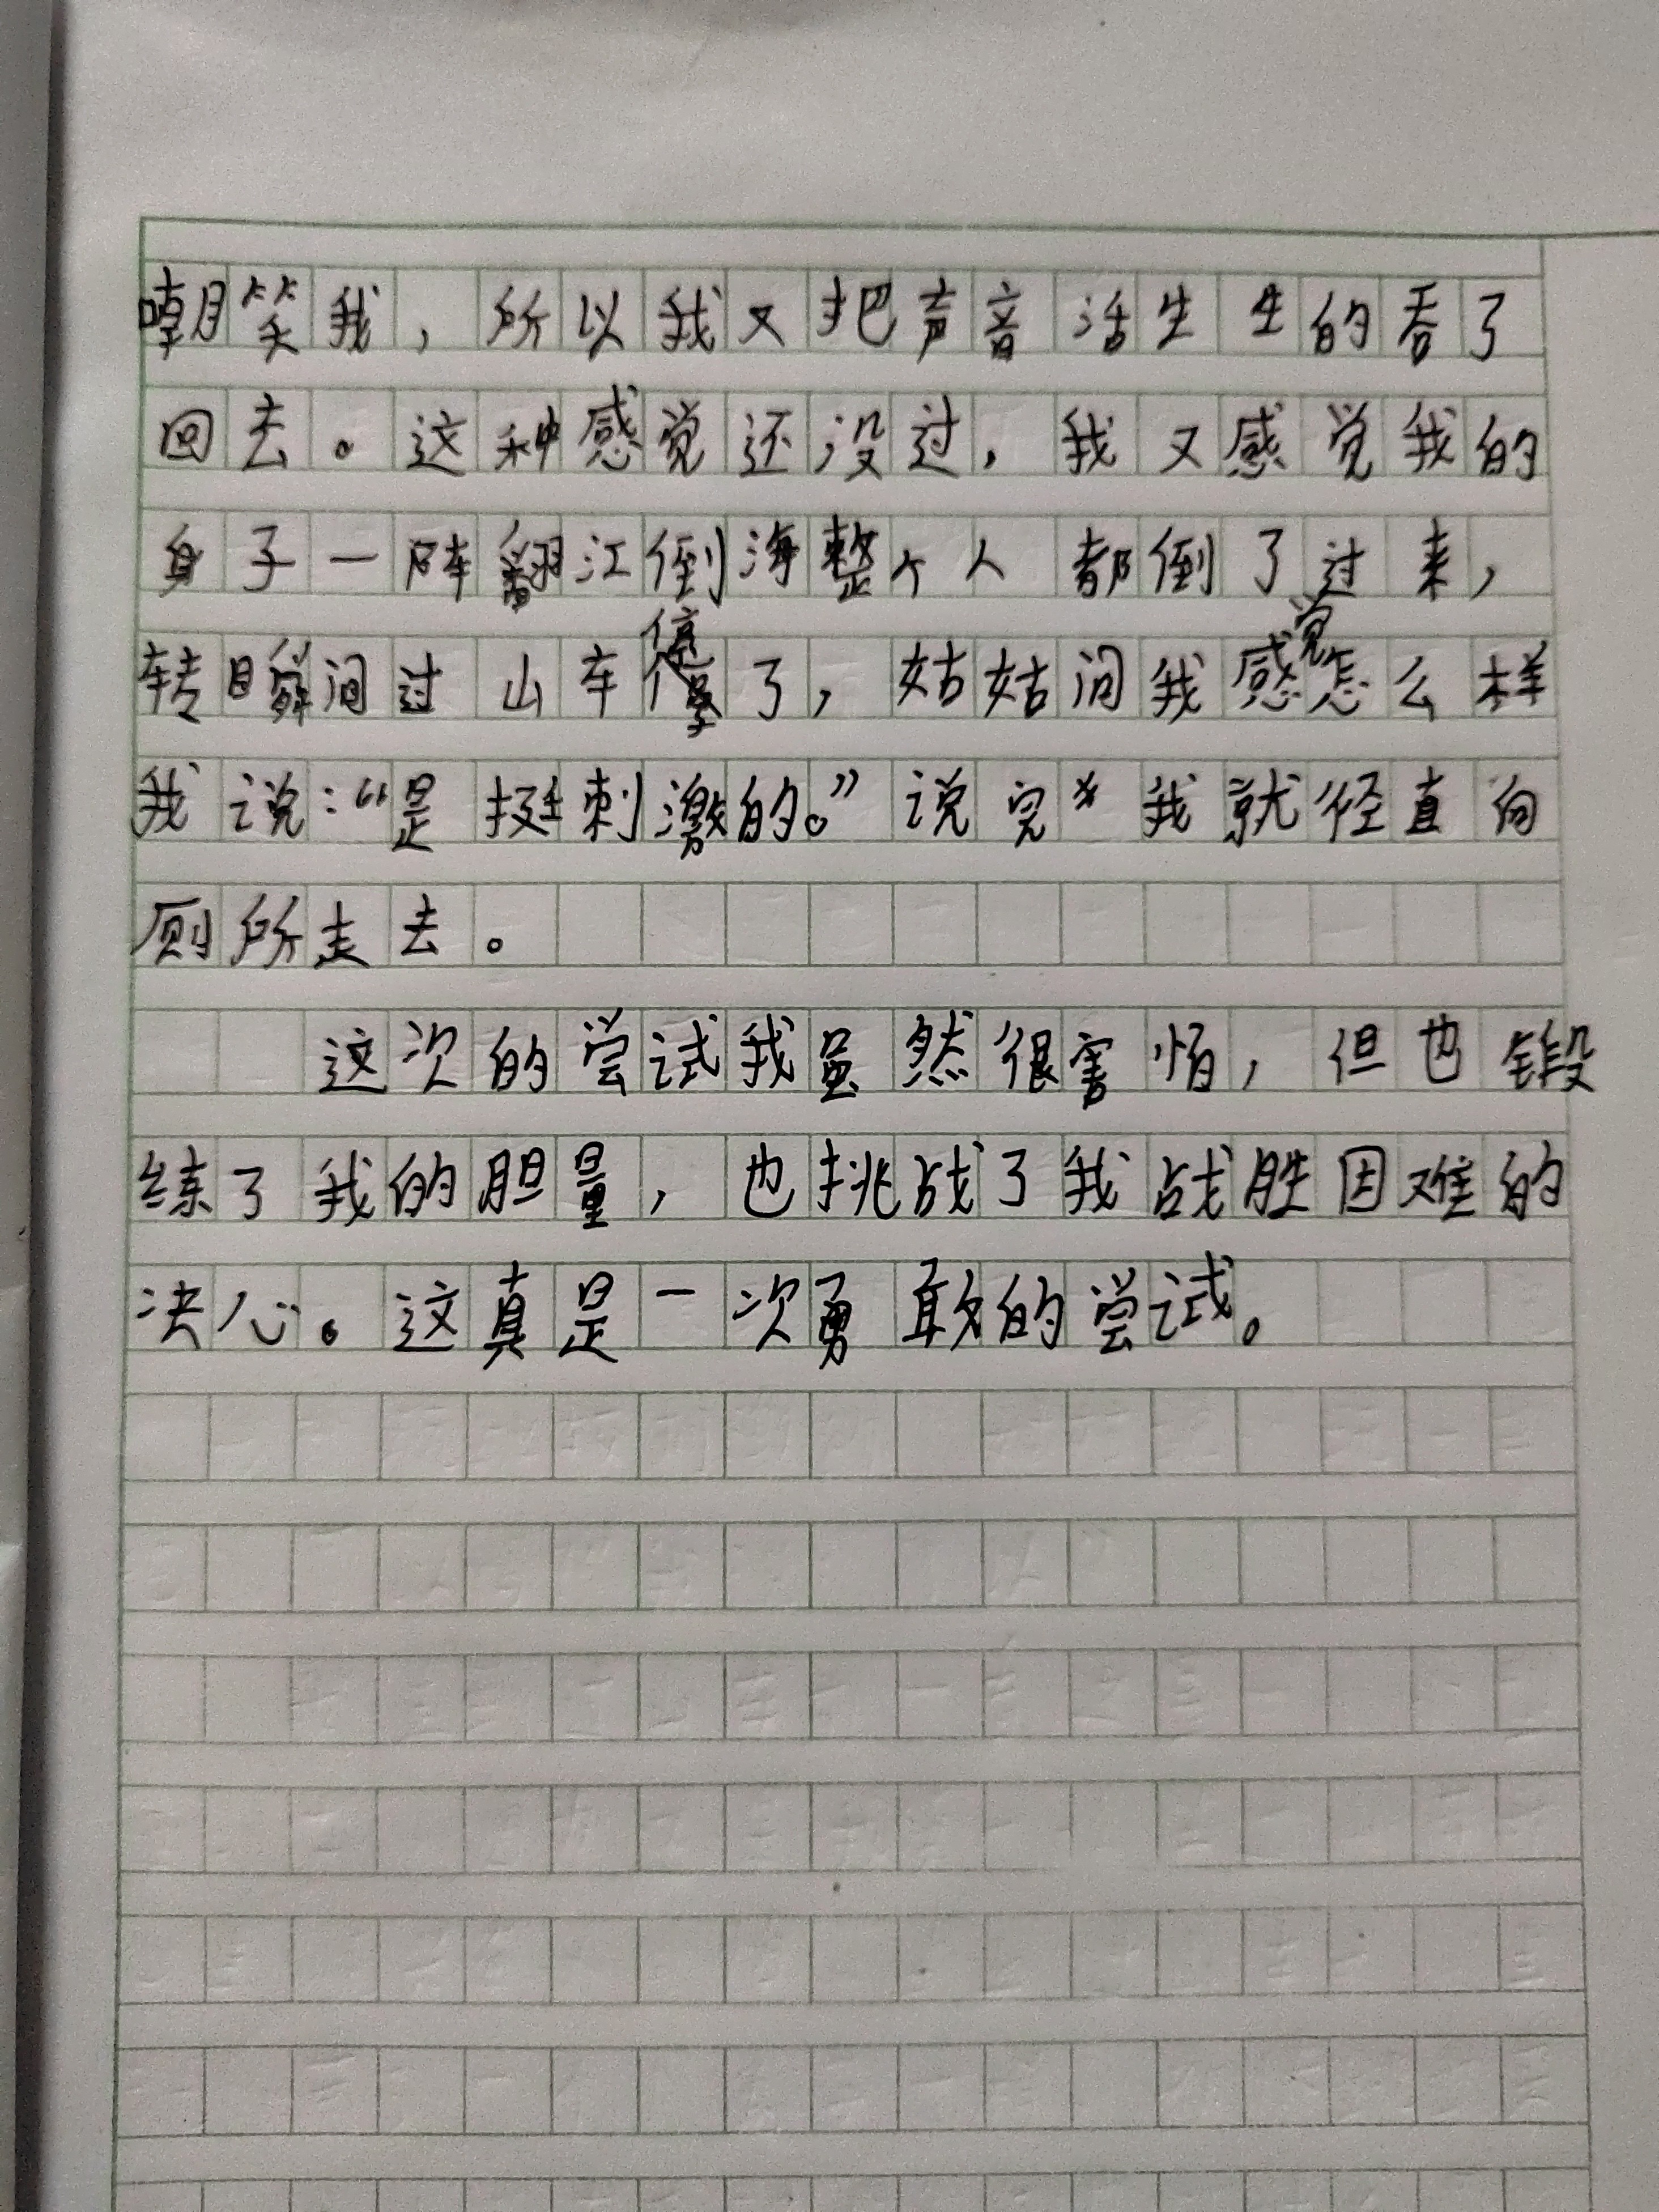 嘲笑我，所以我又把声音活生生的吞了
回去。这种感觉还没过，我又感觉我的
身子一阵翻江倒海整个人都倒了过来，
转瞬间过山车停了，姑姑问我感觉怎么样
我说：“是挺刺激的。”说完我就径直向
厕所走去。
这次的尝试我虽然很害怕，但也锻
练了我的胆量，也挑战了我战胜困难的
决心。这真是一次勇敢的尝试。